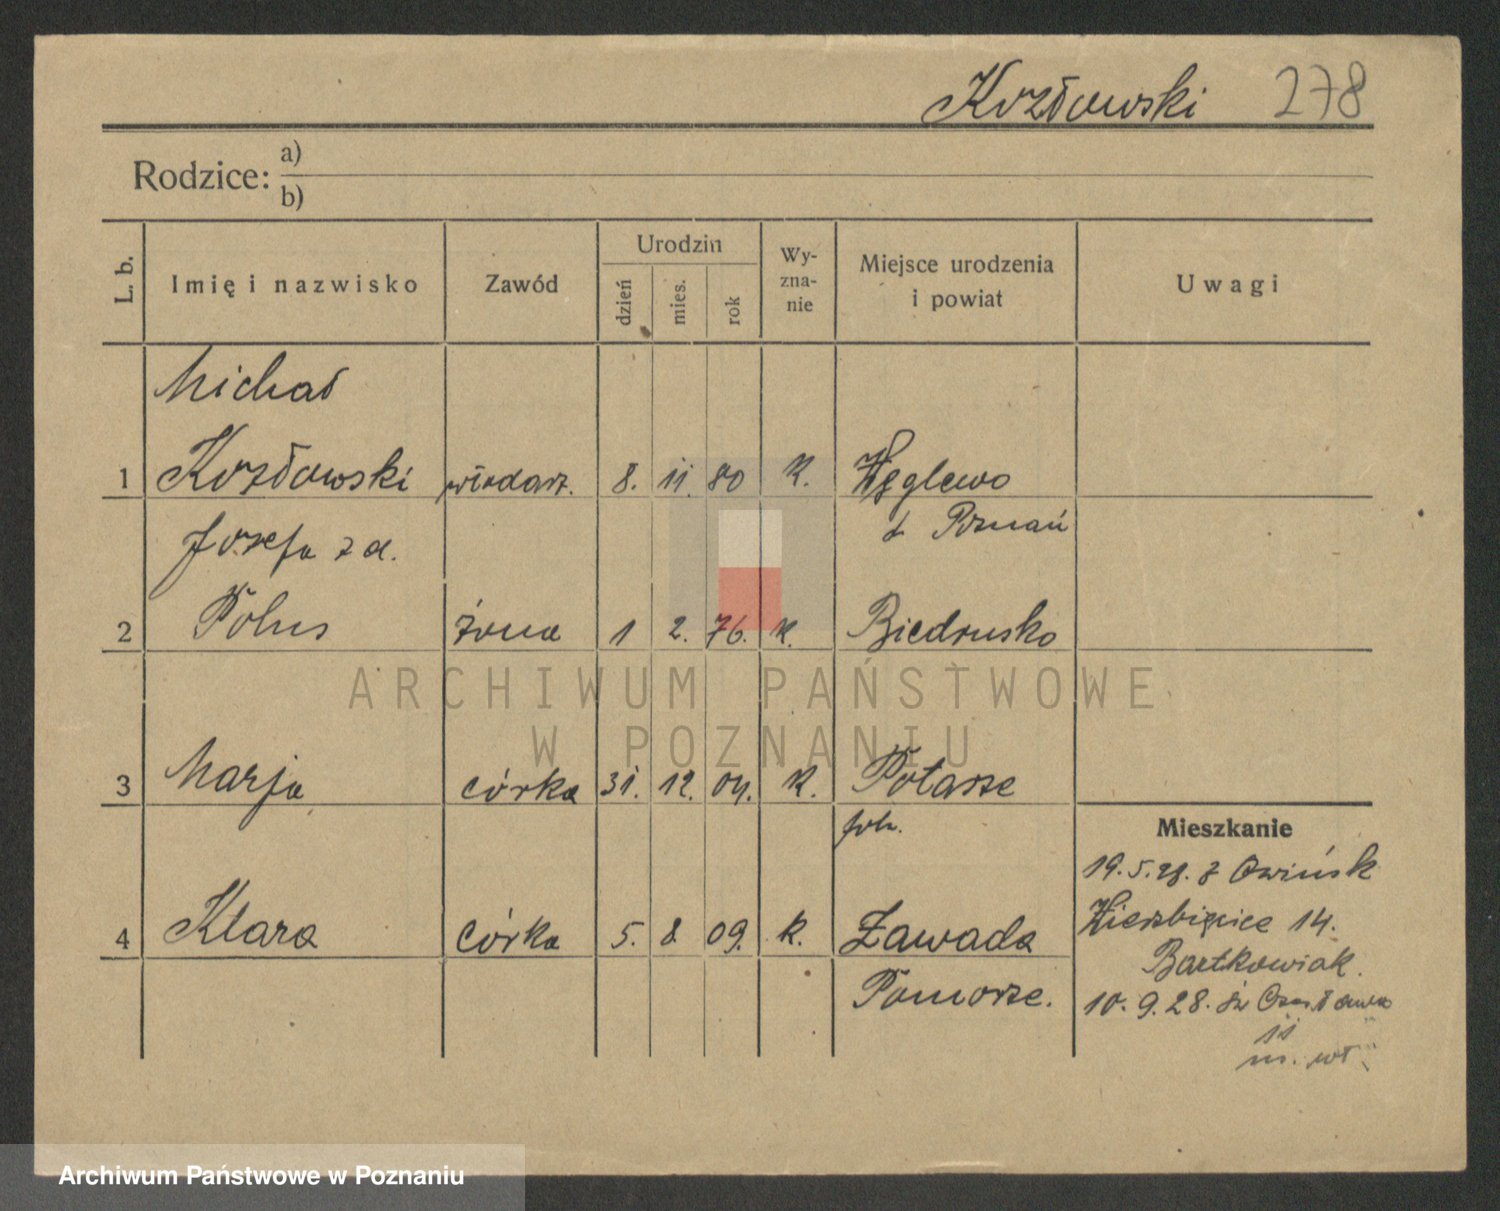 Kozłowski 278
Rodzice: a)
b)
L. b. Imię i nazwisko Zawód Urodzin dzień mies. rok Wy-zna-nie Miejsce urodzenia i powiat Uwagi
Michał
1 Kozłowski włodarz. 8. 11. 80 K. Węglewo
Józefa z d. Poznań
2 Polus żona 1 2. 76. K. Biedrusko
ARCHIWUM PAŃSTWOWE
W POZNANIU
3 Marja córka 31. 12. 04. K. Potasze
Mieszkanie
19. 5. 28. z Owińsk
Wierzbięcice 14.
4 Klara córka 5. 8. 09. K. Zawada
Bartkowiak.
Pomorze. 10. 9. 28. św Czesława
11
m. wł.
Archiwum Państwowe w Poznaniu